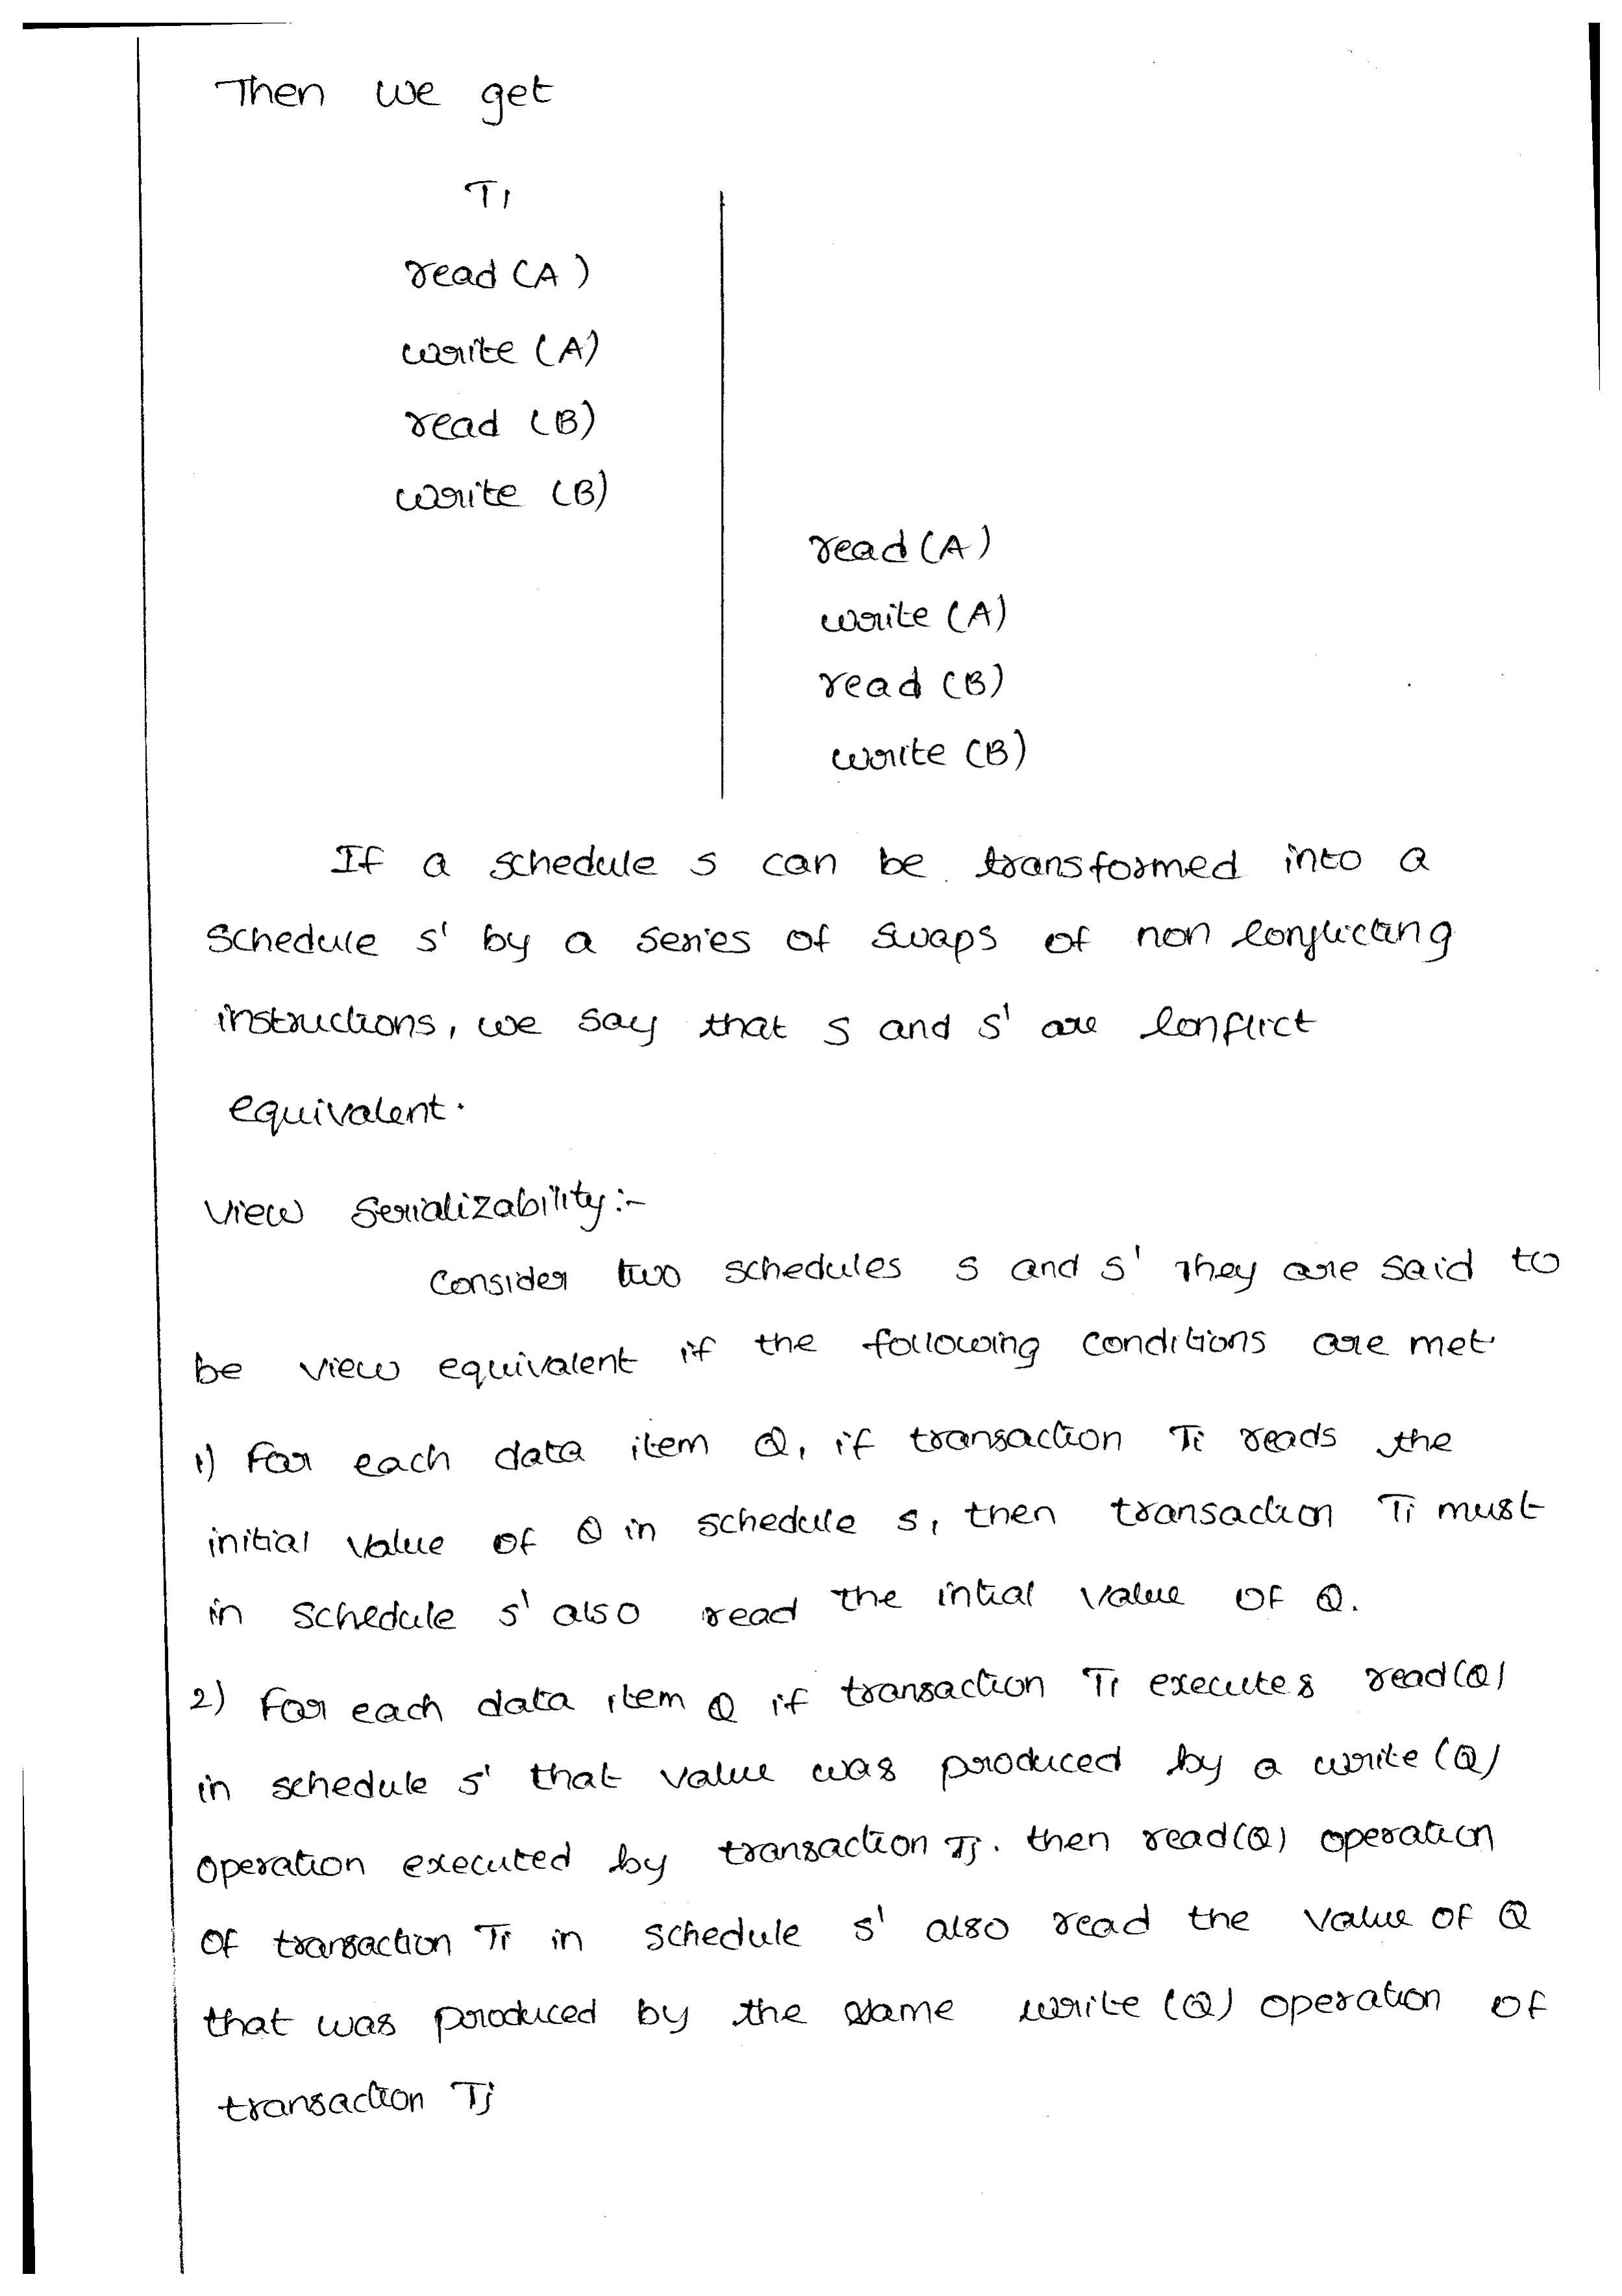 Then we get
T1
read (A)
write (A)
read (B)
write (B)
read (A)
write (A)
read (B)
write (B)
If a schedule s can be transformed into a
schedule s' by a series of swaps of non conflicting
instructions, we say that s and s' are conflict
equivalent.
View Serializability:-
Consider two schedules s and s' They are said to
be view equivalent if the following conditions are met.
1) For each data item Q, if transaction Ti reads the
initial value of Q in schedule s, then transaction Ti must
in schedule s' also read the intial value of Q.
2) For each data item Q if transaction Ti executes read(Q)
in schedule s' that value was produced by a write (Q)
operation executed by transaction Tj. then read(Q) operation
of transaction Ti in schedule s' also read the value of Q
that was produced by the same write (Q) operation of
transaction Tj